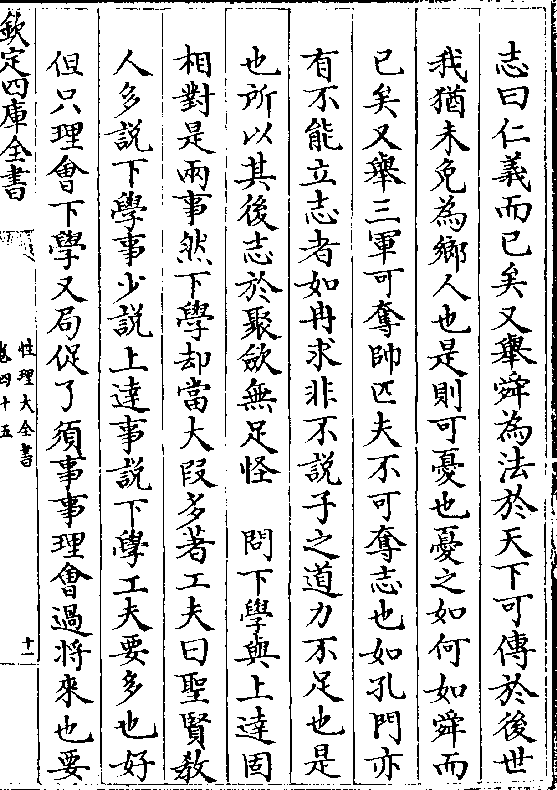 志曰仁義而已矣又舉舜為法於天下可傳於後世
我猶未免為鄉人也是則可憂也憂之如何如舜而
已矣又舉三軍可奪帥匹夫不可奪志也如孔門亦
有不能立志者如冉求非不說子之道力不足也是
也所以其後志於聚斂無足怪　問下學與上達固
相對是兩事然下學却當大段多著工夫曰聖賢教
人多說下學事少說上達事說下學工夫要多也好
但只理會下學又局促了須事事理會過將來也要
欽定四庫全書
性理大全書
卷四十五
十一